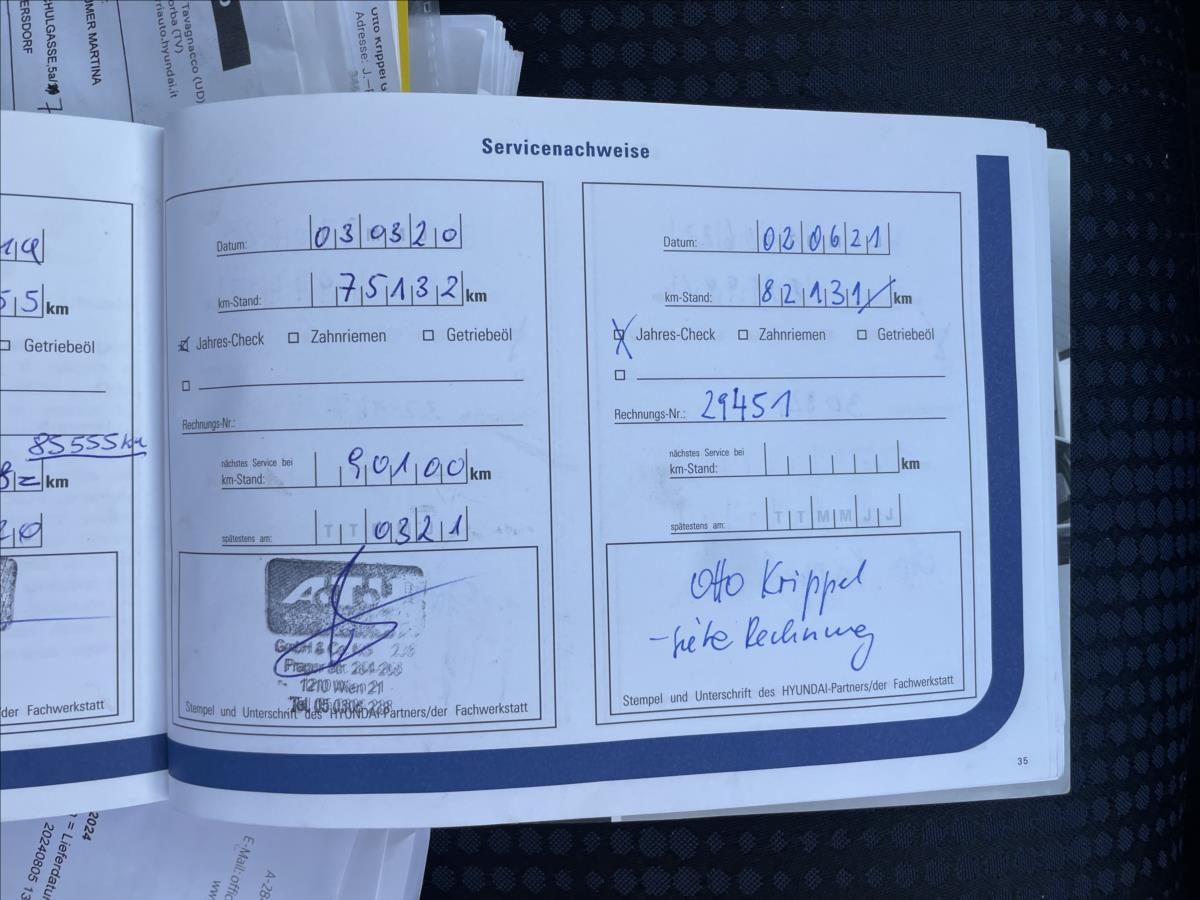 ÖMER MARTINA
HULGASSE,5a/
ERSDORF
Tavagnacco (UD)
orba (TV)
riauto.hyundai.it
Otto Krippel G
Adresse: J.–
Servicenachweise
19
55 km
Getriebeöl
85555km
km
20
der Fachwerkstatt
Datum: 030320
km-Stand: 75132 km
Jahres-Check Zahnriemen Getriebeöl
Rechnungs-Nr.:
nächstes Service bei
km-Stand: 90100 km
spätestens am: TT 0321
GmbH & Co
1210 Wien 21
Tel. 05 0304
Stempel und Unterschrift des HYUNDAI-Partners/der Fachwerkstatt
Datum: 020621
km-Stand: 82131 km
Jahres-Check Zahnriemen Getriebeöl
Rechnungs-Nr.: 29451
nächstes Service bei
km-Stand: km
spätestens am: TTMMJJ
Otto Krippel
- siehe Rechnung
Stempel und Unterschrift des HYUNDAI-Partners/der Fachwerkstatt
35
2024
= Lieferdatu
20240805 13
E-Mail: offic
A-28
ww